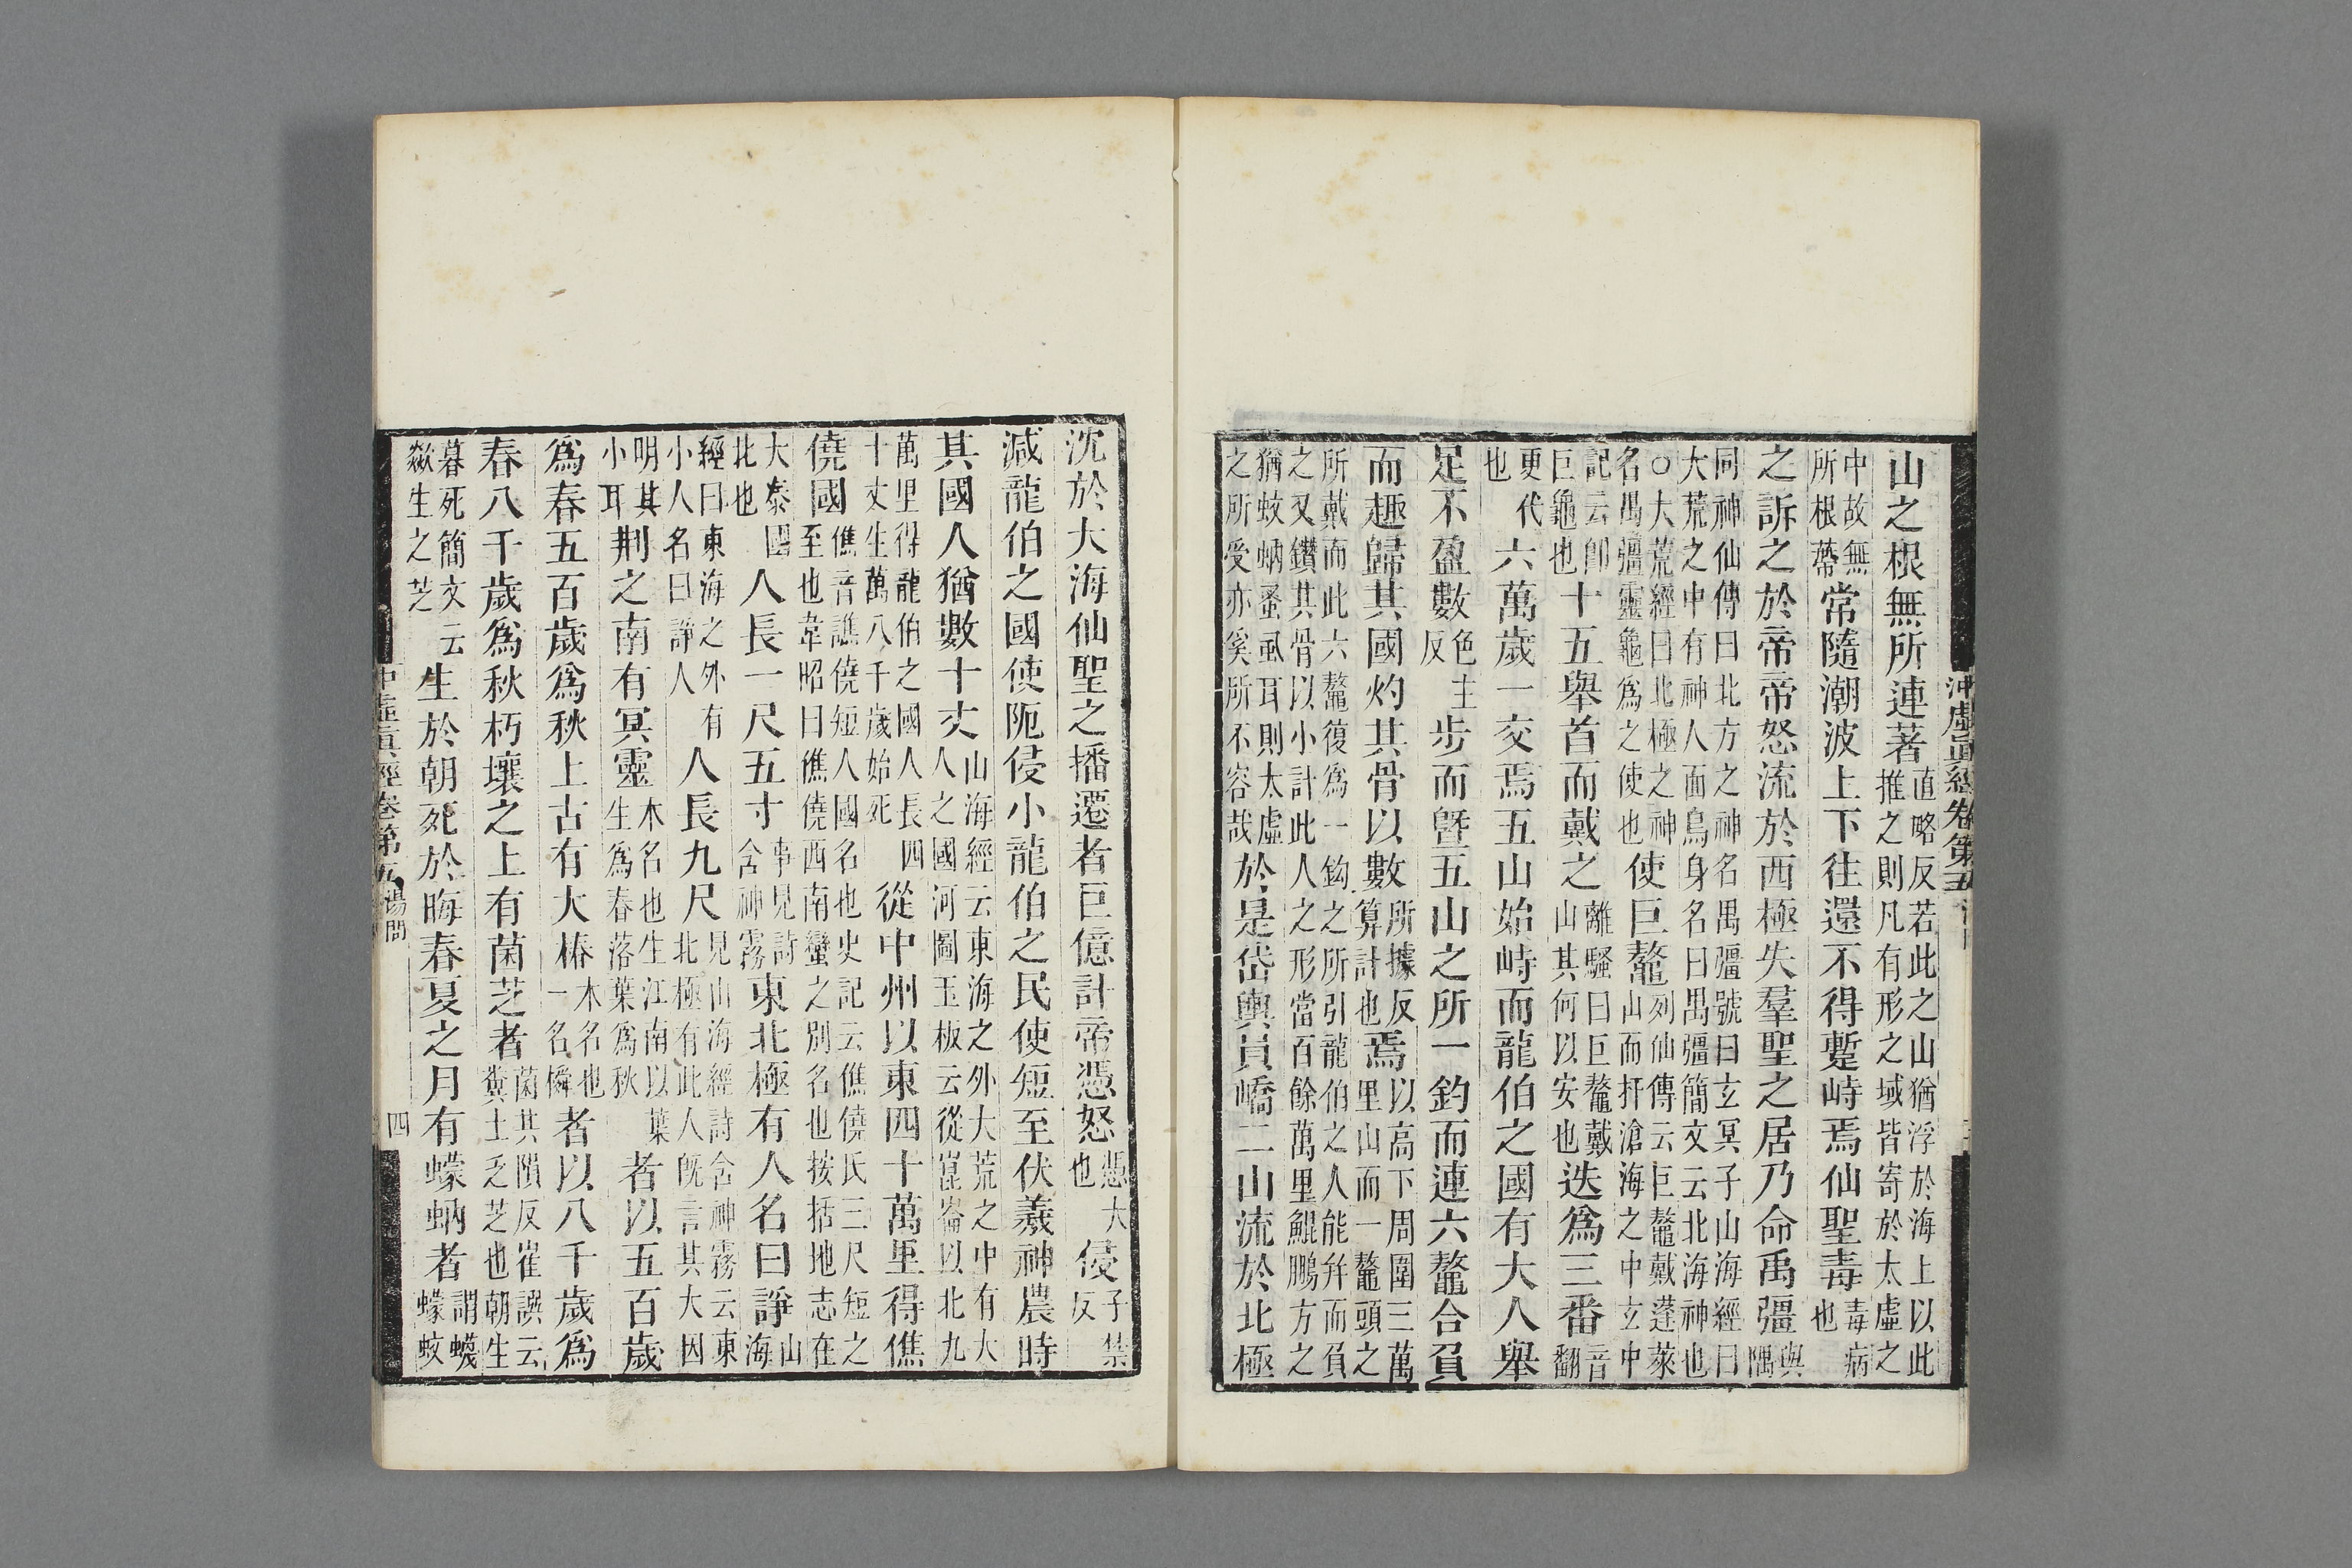 沖虛眞經卷第五
山之根無所連著直略反若此之山猶浮於海上以此推之則凡有形之域皆寄於太虛之
中故無所根蔕常隨潮波上下往還不得蹔峙焉仙聖毒毒病也
之訴之於帝帝怒流於西極失羣聖之居乃命禹彊與隅
同神仙傳曰北方之神名禺彊號曰玄冥子山海經曰大荒之中有神人面鳥身名曰禺彊簡文云北海神也
○大荒經曰北極之神名禺彊靈龜爲之使也使巨鼇列仙傳云巨鼇戴蓬萊山而抃滄海之中玄中
記云卽巨龜也十五舉首而戴之離騷曰巨鼇戴山其何以安也迭爲三番音翻
更代也六萬歲一交焉五山始峙而龍伯之國有大人舉
足不盈數色主反步而曁五山之所一釣而連六鼇合負
而趣歸其國灼其骨以數所據反算計也焉以高下周圍三萬里山而一鼇頭之
所戴而此六鼇復爲一鈎之所引龍伯之人能幷而負之又鑽其骨以小計此人之形當百餘萬里鯤鵬方之
猶蚊蚋蚤虱耳則太虛之所受亦奚所不容哉於是岱輿員嶠二山流於北極
沈於大海仙聖之播遷者巨億計帝憑怒憑大也侵子禁反
減龍伯之國使阨侵小龍伯之民使短至伏羲神農時
其國人猶數十丈山海經云東海之外大荒之中有大人之國河圖玉板云從崑崙以北九
萬里得龍伯之國人長四十丈生萬八千歲始死從中州以東四十萬里得僬
僥國僬音譙僥短人國名也史記云僬僥氏三尺短之至也韋昭曰僬僥西南蠻之別名也按括地志在
大秦國北也人長一尺五寸事見詩含神霧東北極有人名曰諍山海
經曰東海之外有小人名曰諍人人長九尺見山海經詩含神霧云東北極有此人旣言其大因
明其小耳荆之南有冥靈木名也生江南以葉生爲春落葉爲秋者以五百歲
爲春五百歲爲秋上古有大椿木名也一名橓者以八千歲爲
春八千歲爲秋朽壤之上有菌芝者菌其隕反崔譔云糞土之芝也朝生
暮死簡文云歘生之芝生於朝死於晦春夏之月有蠓蚋者謂蠛蠓蚊
沖虛眞經卷第五 湯問 四